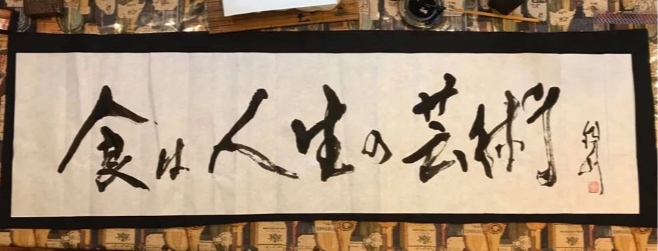 食は人生の芸術